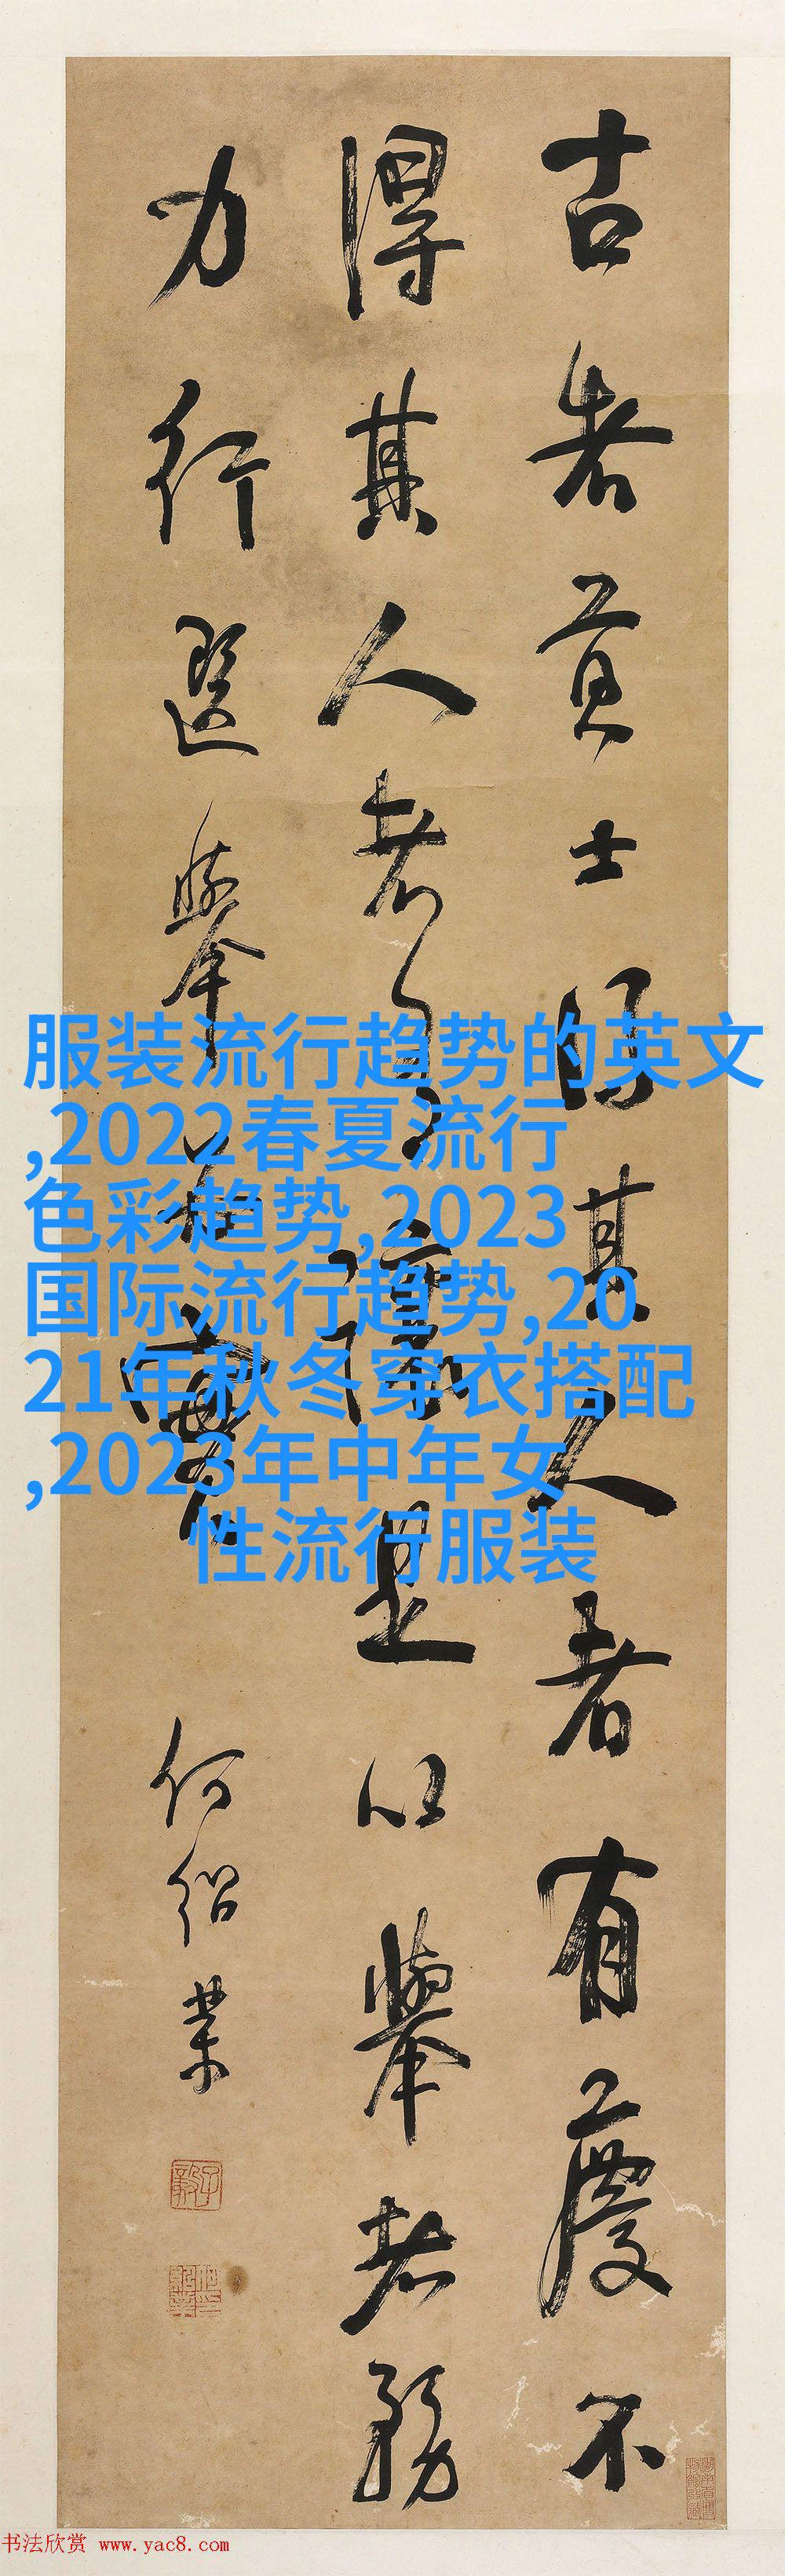 古者貢士得其人者有慶不
得其人者有讓是以舉者務
力行選舉
何紹業
服装流行趋势的英文
,2022春夏流行
色彩趋势,2023
国际流行趋势,20
21年秋冬穿衣搭配
,2023年中年女
性流行服装
书法欣赏 www.yac8.com